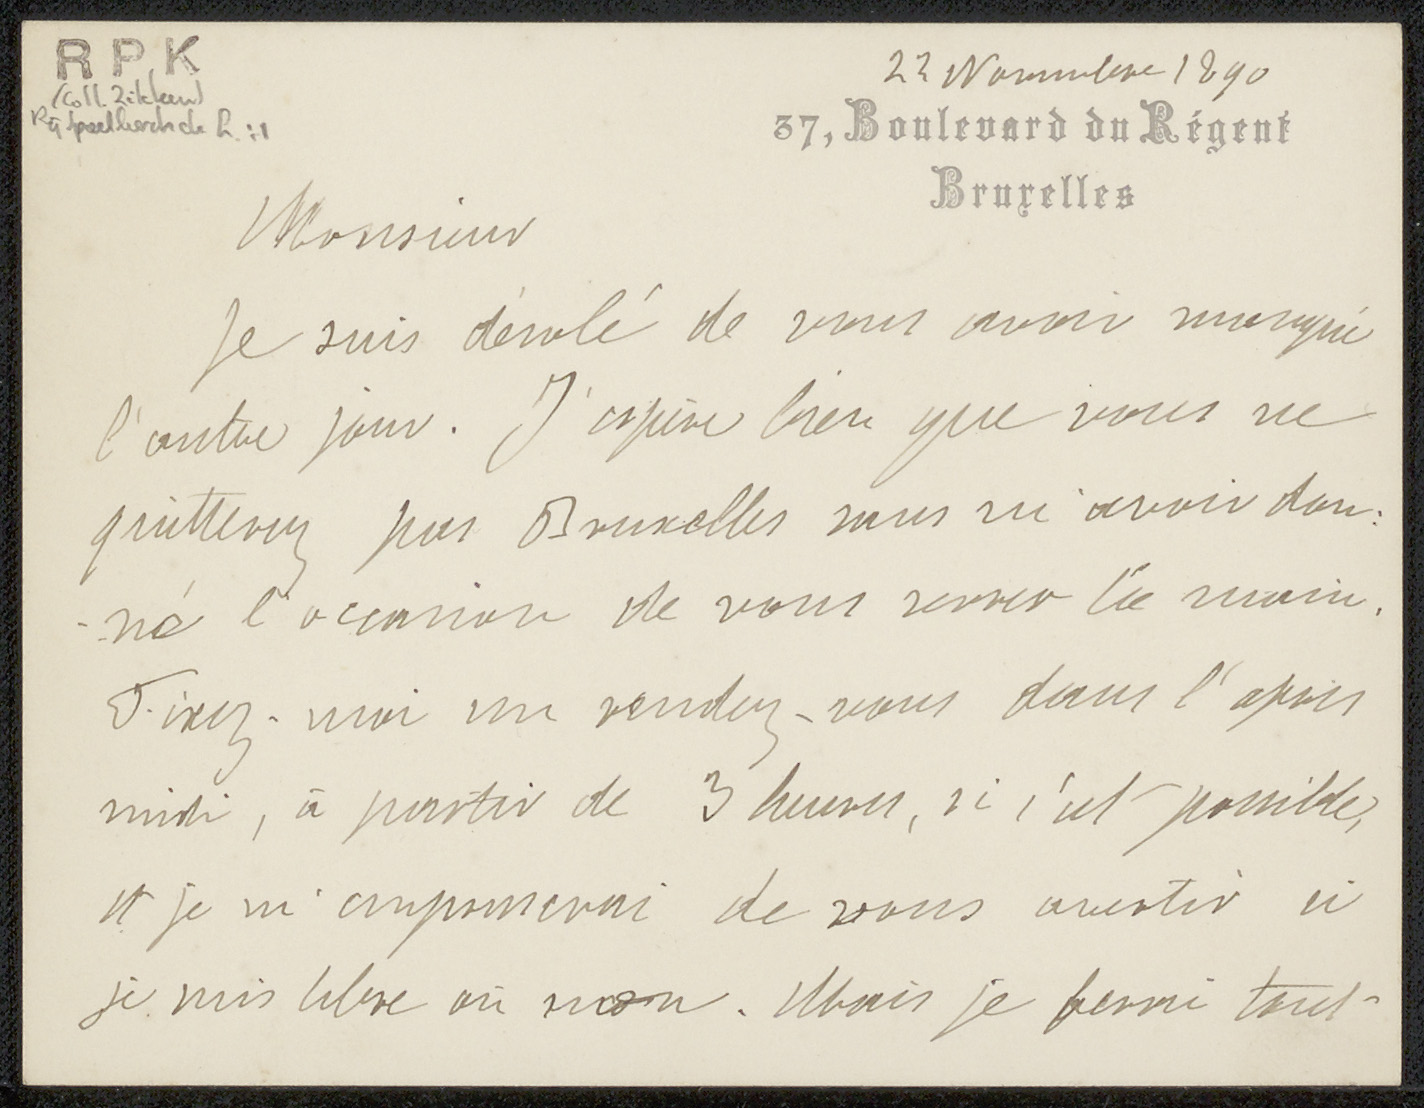 R P K
(Coll. Zilcken)
22 Novembre 1890
37, Boulevard du Régent
Bruxelles
Monsieur
Je suis désolé de vous avoir manqué
l'autre jour. J'espère bien que vous ne
quitterez pas Bruxelles sans m'avoir don:
-né l'occasion de vous serrer la main.
Fixez-moi un rendez-vous dans l'après
midi, à partir de 3 heures, si c'est possible,
et je m'empresserai de vous avertir si
je suis libre ou non. Mais je ferai tout